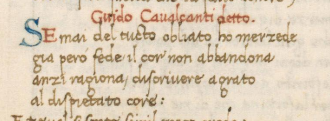 Guido Cavalcanti detto.
SE mai del tucto obliato ho merzede
gia pero fede il cor non abbandona
anzi ragiona discrivere agrato
al dispietato core: